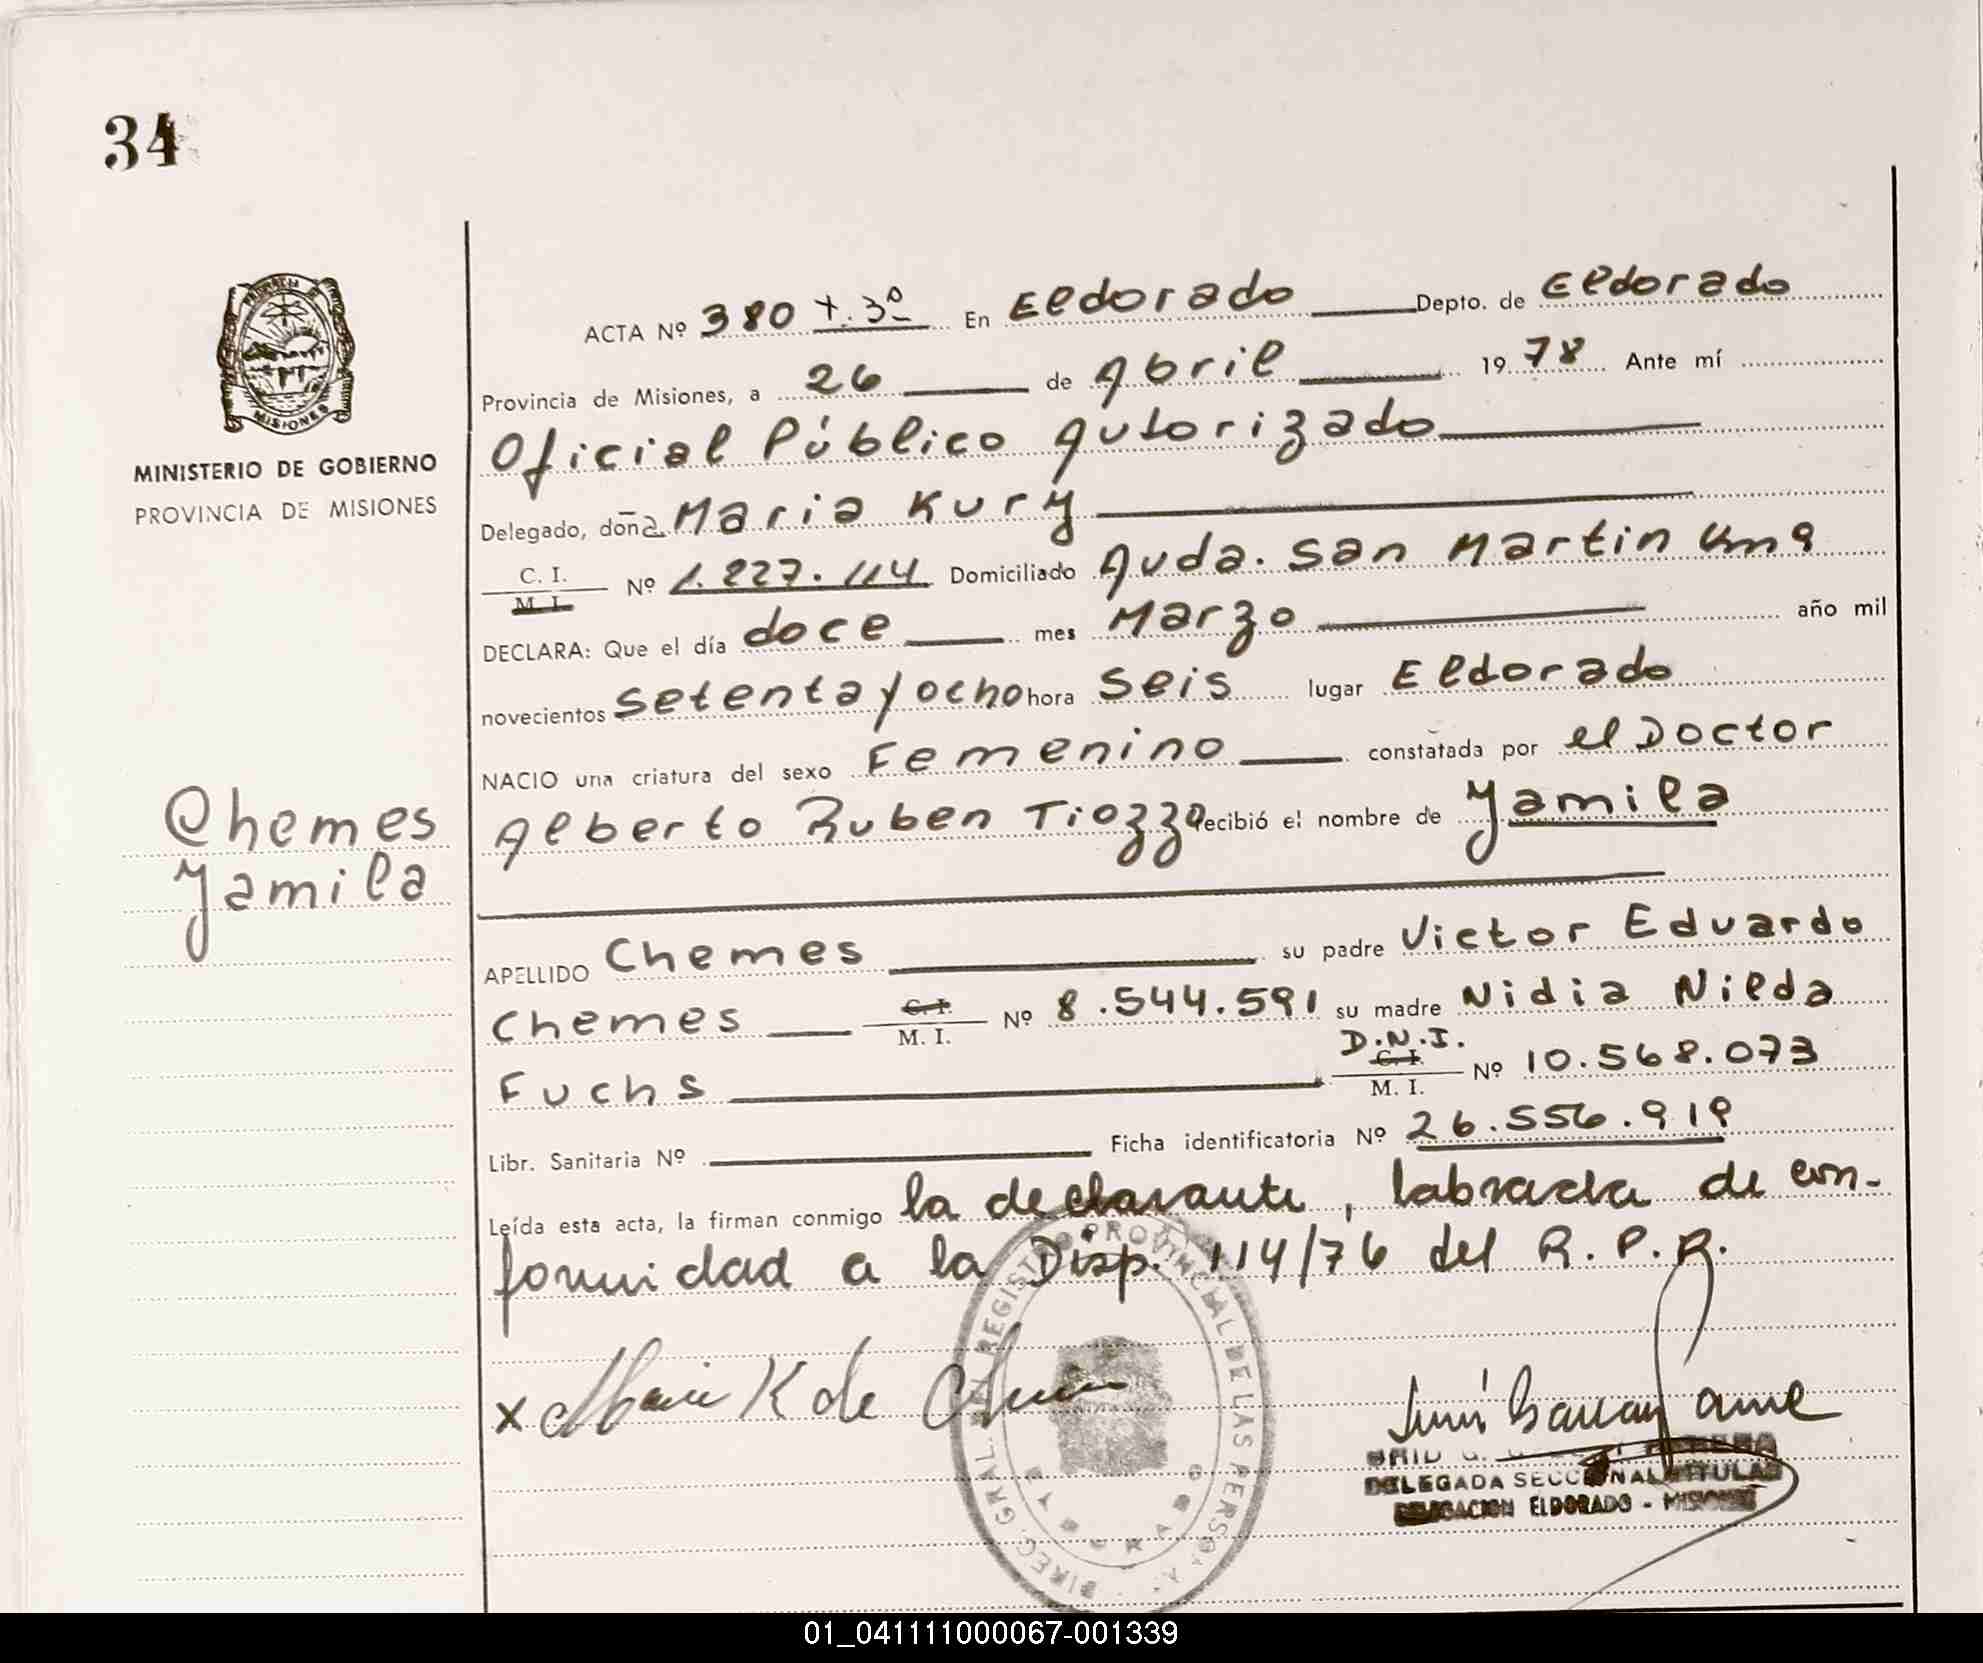 34
MINISTERIO DE GOBIERNO
PROVINCIA DE MISIONES
Chemes
Yamila
ACTA Nº 380 t. 3º En Eldorado Depto. de Eldorado
Provincia de Misiones, a 26 de Abril 1978 Ante mí
Oficial Público Autorizado
Delegado, doña Maria Kury
C. I. M. I. Nº 1.227.114 Domiciliado Avda. San Martin Km 9
DECLARA: Que el día doce mes Marzo año mil
novecientos setenta y ocho hora seis lugar Eldorado
NACIO una criatura del sexo Femenino constatada por el Doctor
Alberto Ruben Tiozzo recibió el nombre de Yamila
APELLIDO Chemes su padre Victor Eduardo
Chemes C. I. M. I. Nº 8.544.591 su madre Nidia Nilda
Fuchs D.N.I. C. I. M. I. Nº 10.568.073
Libr. Sanitaria Nº Ficha identificatoria Nº 26.556.919
Leída esta acta, la firman conmigo la declarante, labrada de con-
formidad a la Disp. 114/76 del R. P. R.
x Maria K de
DELEGADA SECCIONAL TITULAR
DELEGACION ELDORADO - MISIONES
DIREC. GRAL. DEL REGISTRO PROVINCIAL DE LAS PERSONAS
ELDORADO
01_041111000067-001339